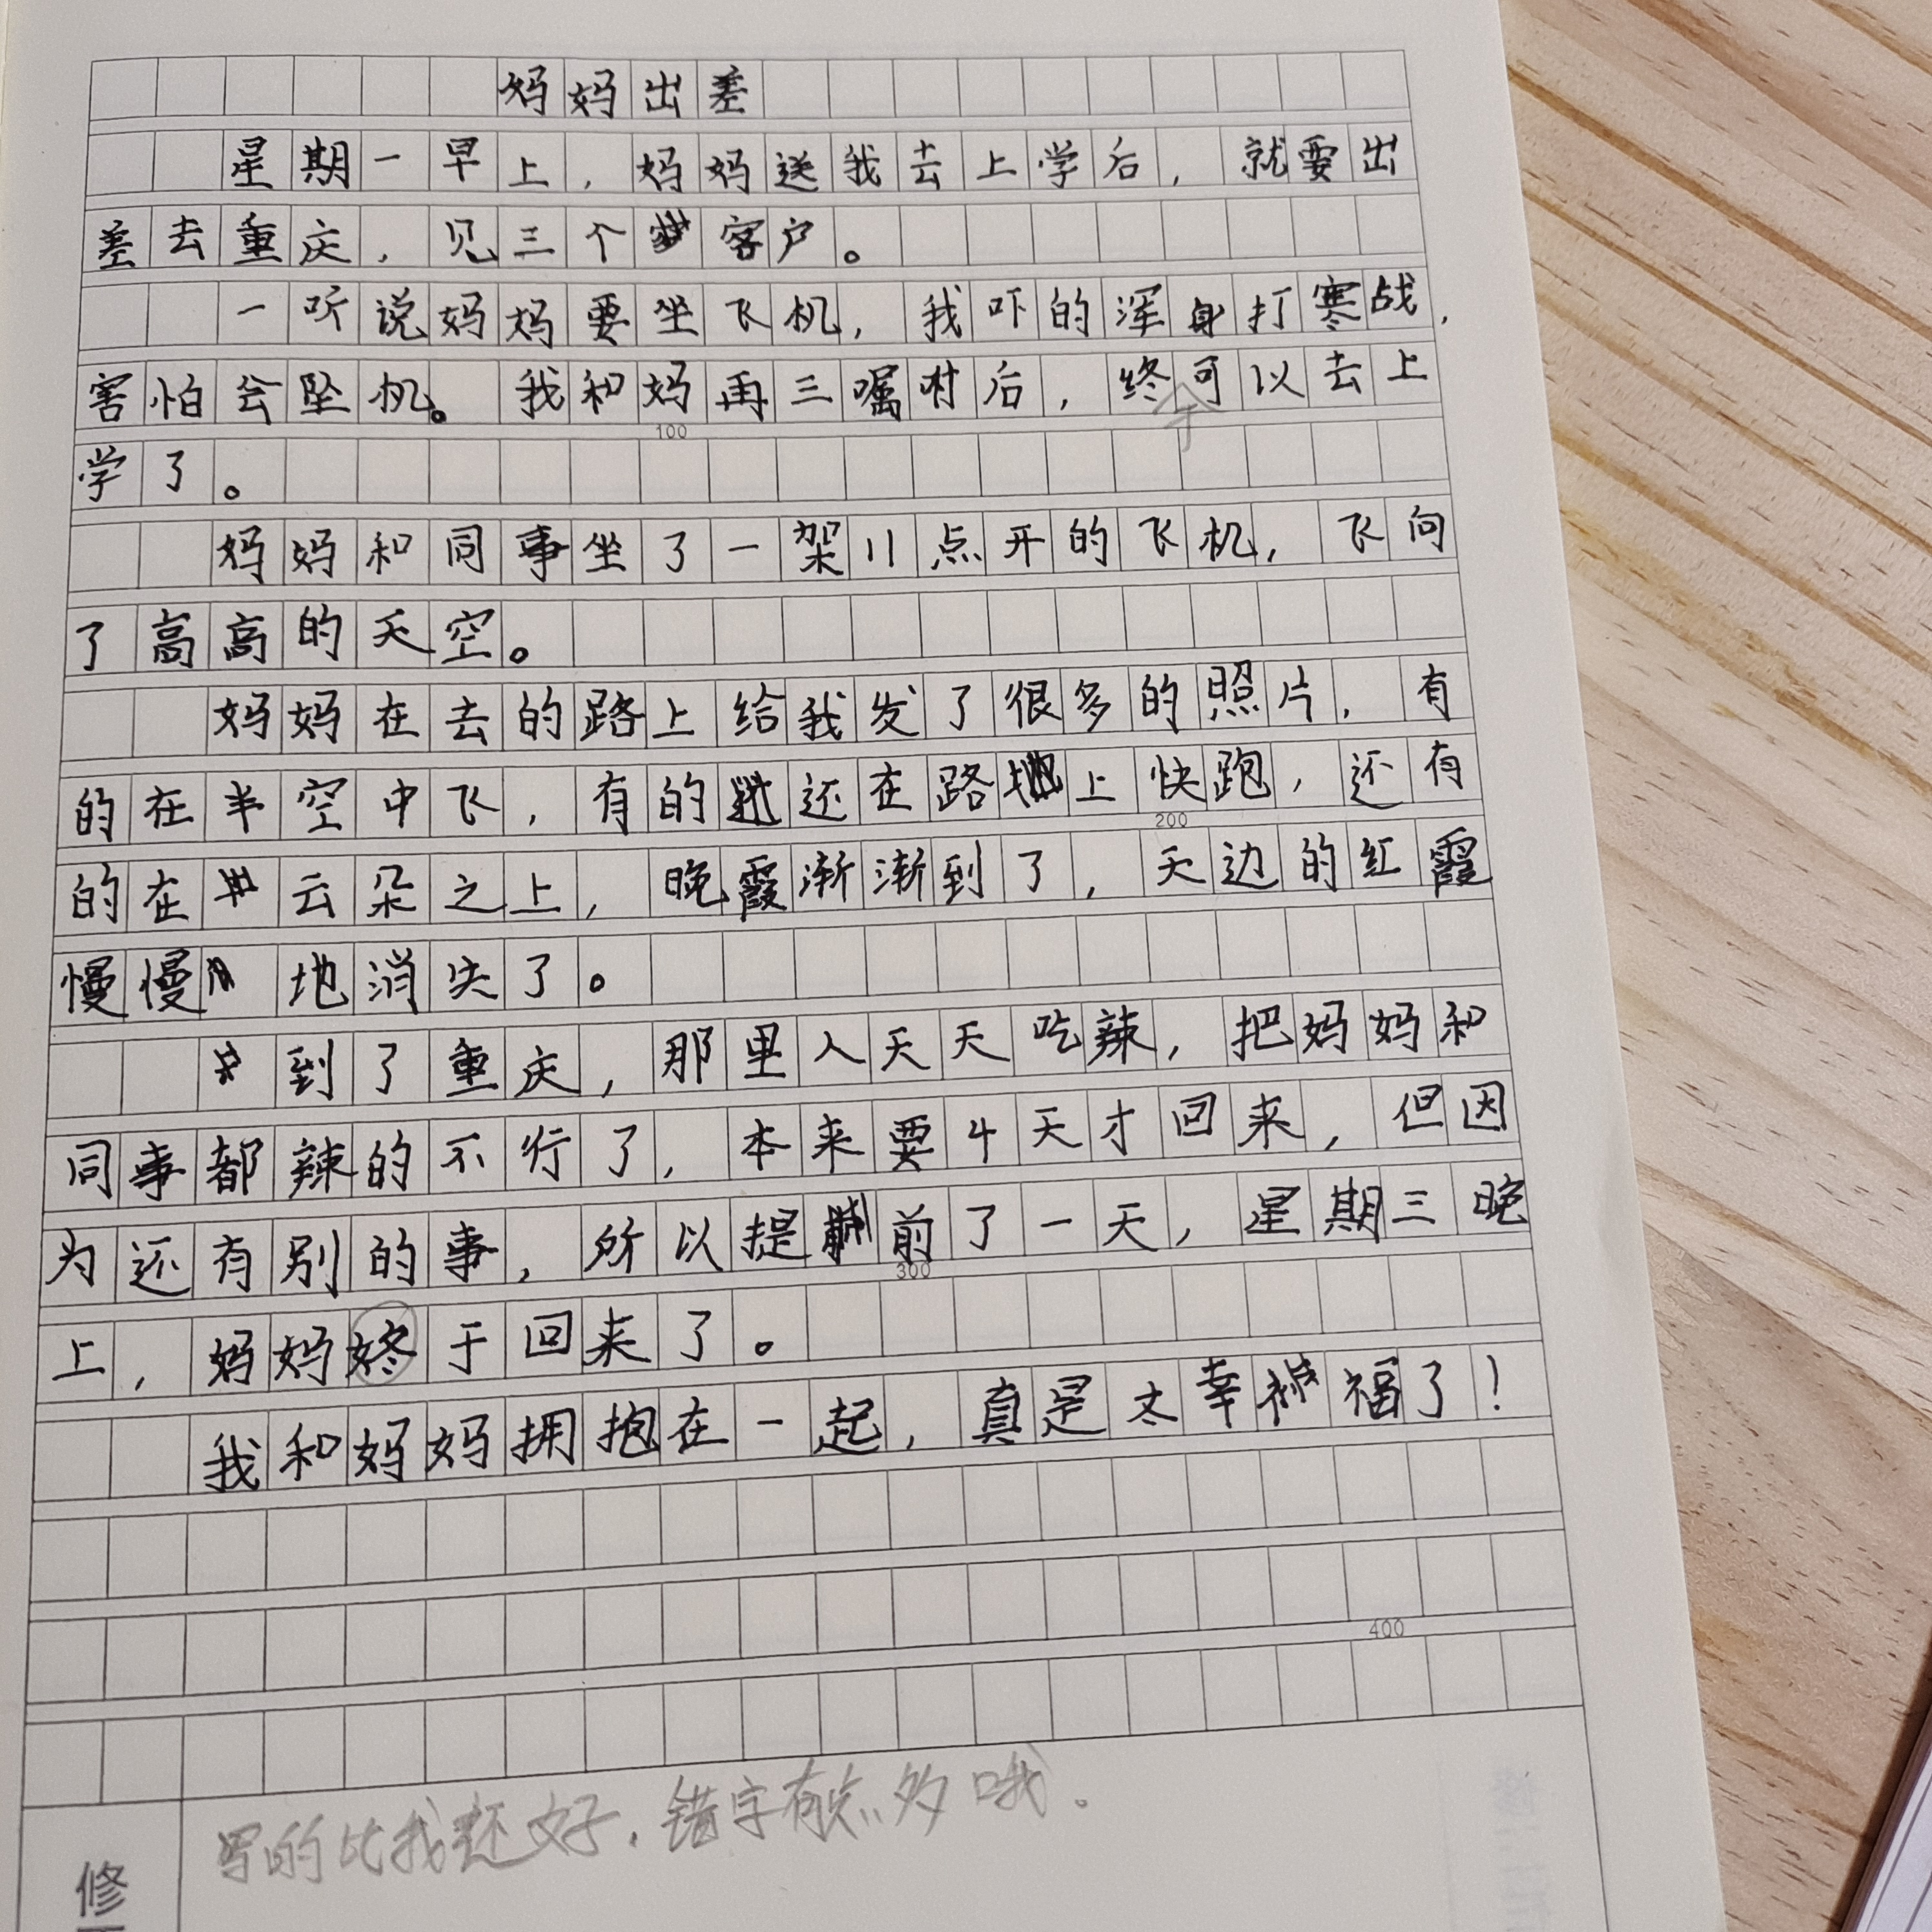 妈妈出差
星期一早上，妈妈送我去上学后，就要出
差去重庆，见三个客户。
一听说妈妈要坐飞机，我吓的浑身打寒战，
害怕会坠机。我和妈再三嘱咐后，终于可以去上
100
学了。
妈妈和同事坐了一架11点开的飞机，飞向
了高高的天空。
妈妈在去的路上给我发了很多的照片，有
的在半空中飞，有的还在路上快跑，还有
200
的在云朵之上，晚霞渐渐到了，天边的红霞
慢慢地消失了。
到了重庆，那里人天天吃辣，把妈妈和
同事都辣的不行了，本来要4天才回来，但因
为还有别的事，所以提前了一天，星期三晚
300
上，妈妈终于回来了。
我和妈妈拥抱在一起，真是太幸福了！
400
写的比我还好，错字有点多哦。
修